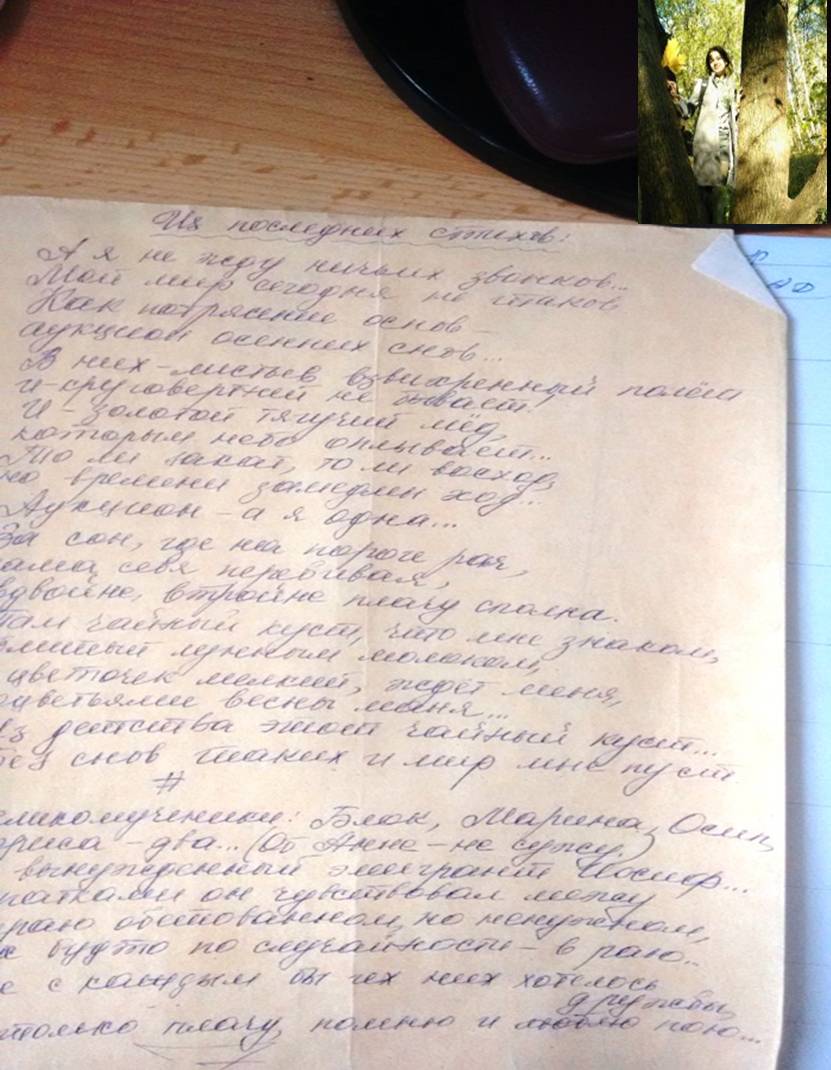 Из последних стихов:
А я не жду ничьих звонков...
Мой мир сегодня не таков
Как потрясение основ –
аукцион осенних снов...
В них – листьев взвихренный полёт
и круговертней не бывает!
И – золотой тягучий мёд,
которым небо оплывает...
То ли закат, то ли восход,
но времени замедлен ход...
Аукцион – а я одна...
За сон, где на пороге рая,
сама себя перебивая,
вдвойне, втройне плачу сполна.
Там чайный куст, что мне знаком,
облитый лунным молоком,
цветочек мелкий, ждёт меня,
соцветьями весны маня...
Из детства этот чайный куст...
Без снов таких и мир мне пуст.
#
Великомученики: Блок, Марина, Осип,
Бориса – два... (Об Анне – не сужу.)
вынужденный эмигрант Иосиф...
он чувствовал между
краю обетованном, но ненужном,
как будто по случайности – в раю...
с каждым бы из них хотелось
дружбы,
только плачу, помню и люблю пою...
П
АФ